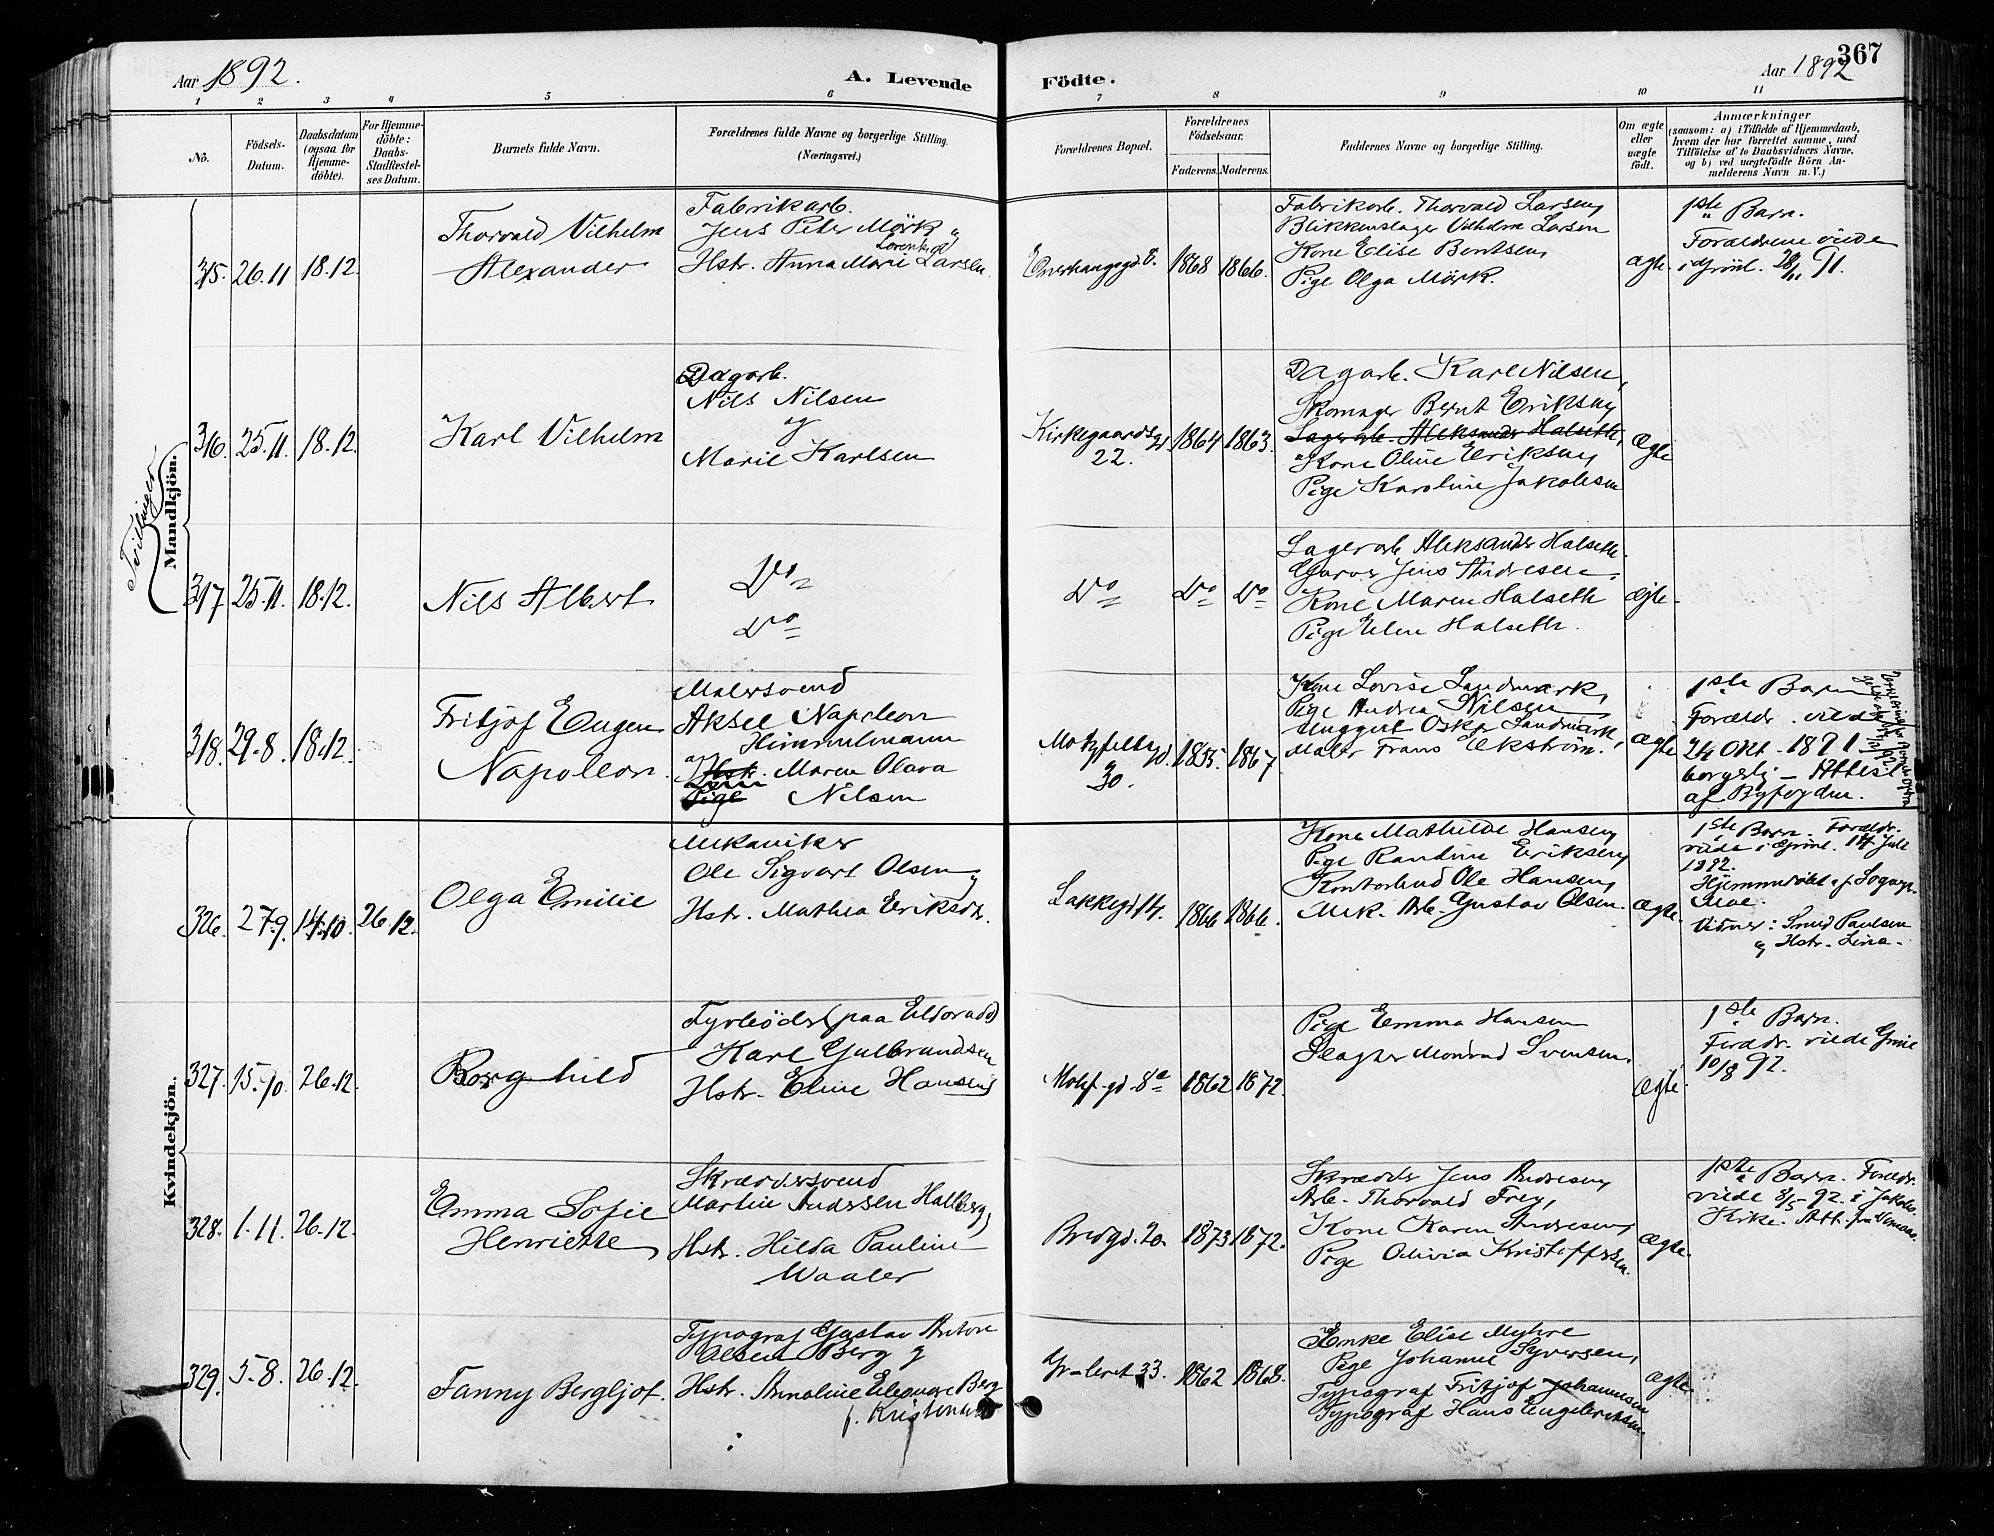 Aar 1892.
A. Levende
Födte.
Aar 1892
367
1 2 3 4 5 6 7 8 9 10 11
No.
Födsels-
Datum.
Daabsdatum
(ogsaa for
Hjemme-
döbte).
For Hjemme-
döbte:
Daabs-
Stadfæstel-
ses Datum.
Barnets fulde Navn.
Forældrenes fulde Navne og borgerlige Stilling.
(Næringsvei.)
Forældrenes Bopæl.
Forældrenes
Födselsaar.
Faderens. Moderens.
Faddernes Navne og borgerlige Stilling.
Om ægte
eller
uægte
födt.
Anmærkninger
(saasom: a) i Tilfælde af Hjemmedaab,
hvem der har forrettet samme, med
Tilföielse af to Daabsvidners Navne,
og b) ved uægtefödte Börn An-
melderens Navn m. V.)
Tvillinger
Mandkjön.
315. 26.11 18.12.
Thorvald Vilhelm
Alexander
Fabrikarb.
Jens Peter Mörk og
Lorentze
Hstr. Anna Marie Larsen
Enerhaugsgd. 8.
1868 1866.
Fabrikarb. Thorvald Larsen,
Blikkenslager Vilhelm Larsen
Kone Elise Berntsen,
Pige Olga Mörk.
ægte.
1ste Barn.
Forældrene viede
i Grönl. 28/11 91.
316. 25.11. 18.12.
Karl Vilhelm
Dagarb.
Nils Nilsen
og
Marie Karlsen
Kirkegaardsgd.
22.
1864 1863.
Dagarb. Karl Nilsen,
Skomager Bernt Eriksen,
Lagerarb. Aleksander Halseth,
Kone Oline Eriksen,
Pige Karoline Jakobsen
Ægte
317 25.11. 18.12.
Nils Albert
Do
Do
Do
Do Do
Lagerarb Aleksander Halseth.
Garver Jens Andresen,
Kone Maren Halseth
Pige Elen Halseth.
ægte.
318. 29.8. 18.12.
Fritjof Eugen
Napoleon.
Malersvend
Aksel Napoleon
Himmelmann
og Hstr. Maren Olava
Pige Nilsen
Motzfeldtsgd.
30.
1855. 1867
Kone Lovise Landmark,
Pige Andrea Nilsen
Huggert Oskar Landmark,
Maler Frans Ekström.
Ægte
1ste Barn
Forældr. viede
24 Okt. 1891
borgerlig – Attest
af Byfogden.
Kvindekjön.
326. 27.9. 14.10. 26.12.
Olga Emilie
Mekaniker
Ole Sigvart Olsen og
Hstr. Mathea Eriksdtr.
Lakkegd 14.
1866 1866.
Kone Mathilde Hansen,
Pige Randine Eriksen,
Kontorbud Ole Hansen,
Mek. Arb. Gustav Olsen.
Ægte.
1ste Barn. Forældr.
viede i Grönl. 14 Juli
1892.
Hjemmedöbt af Sognepr.
Vidner: Smed Paulsen
og Hstr. Lina.
327. 15.10. 26.12.
Borghild
Fyrböder (paa Eldorado)
Karl Gulbrandsen
Hstr. Eline Hansen
Motzf.gd. 8a
1862 1872.
Pige Emma Hansen
Slagter Monrad Svensen.
Ægte
1ste Barn.
Foraldr. viede Grönl
10/8 92.
328. 1.11. 26.12.
Emma Sofie
Henriette
Skræddersvend
Martin Andersen Hallberg,
Hstr. Hilda Pauline
Waaler
Bredgd. 20.
1873 1872.
Skrædder Jens Andresen,
Arb. Thorvald Frey,
Kone Karen Andresen,
Pige Olivia Kristoffersen.
Ægte.
1ste Barn. Forældr.
viede 8/5-92. i Jakobs
Kirke.
329. 5.8. 26.12.
Fanny Bergljot.
Typograf Gustav Anton
Olsen Berg og
Hstr. Annaline Eleonore Berg
f.
Grönleret 33.
1862 1868.
Enke Elise Myhre
Pige Johanne Syversen,
Typograf Fritjof Johannesen
Typograf Hans Engebretsen.
ægte.